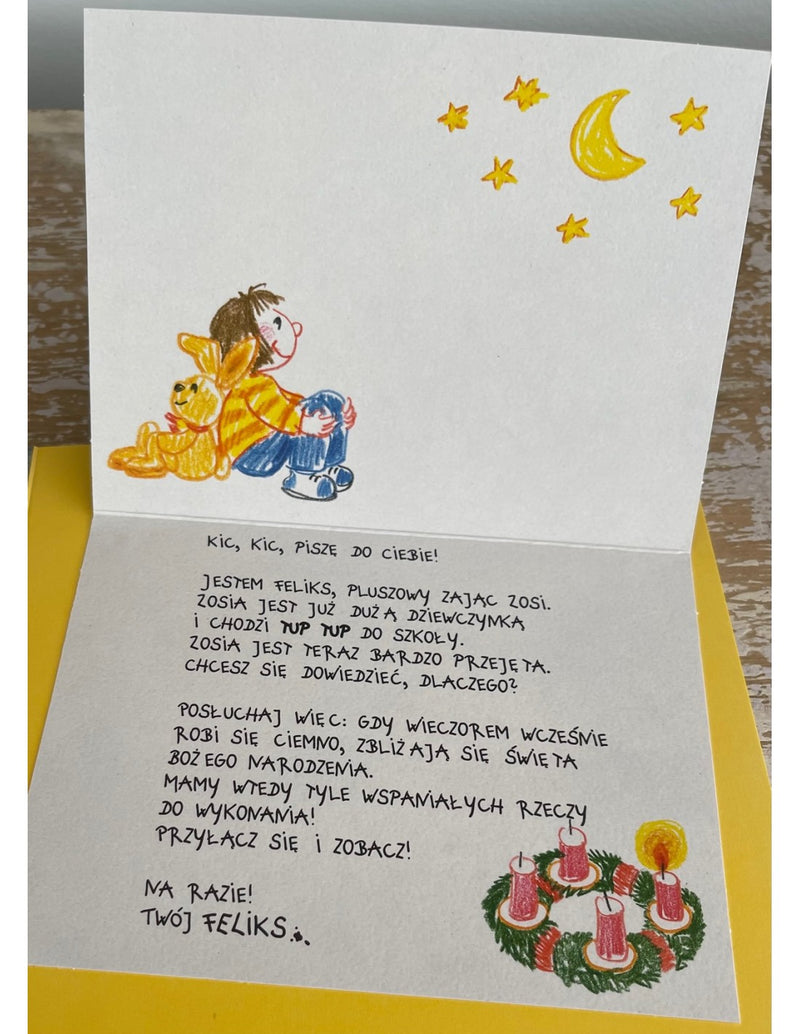 KIC, KIC, PISZĘ DO CIEBIE!
JESTEM FELIKS, PLUSZOWY ZAJĄC ZOSI.
ZOSIA JEST JUŻ DUŻĄ DZIEWCZYNKĄ
I CHODZI TUP TUP DO SZKOŁY.
ZOSIA JEST TERAZ BARDZO PRZEJĘTA.
CHCESZ SIĘ DOWIEDZIEĆ, DLACZEGO?
POSŁUCHAJ WIĘC: GDY WIECZOREM WCZEŚNIE
ROBI SIĘ CIEMNO, ZBLIŻAJĄ SIĘ ŚWIĘTA
BOŻEGO NARODZENIA.
MAMY WTEDY TYLE WSPANIAŁYCH RZECZY
DO WYKONANIA!
PRZYŁĄCZ SIĘ I ZOBACZ!
NA RAZIE!
TWÓJ FELIKS